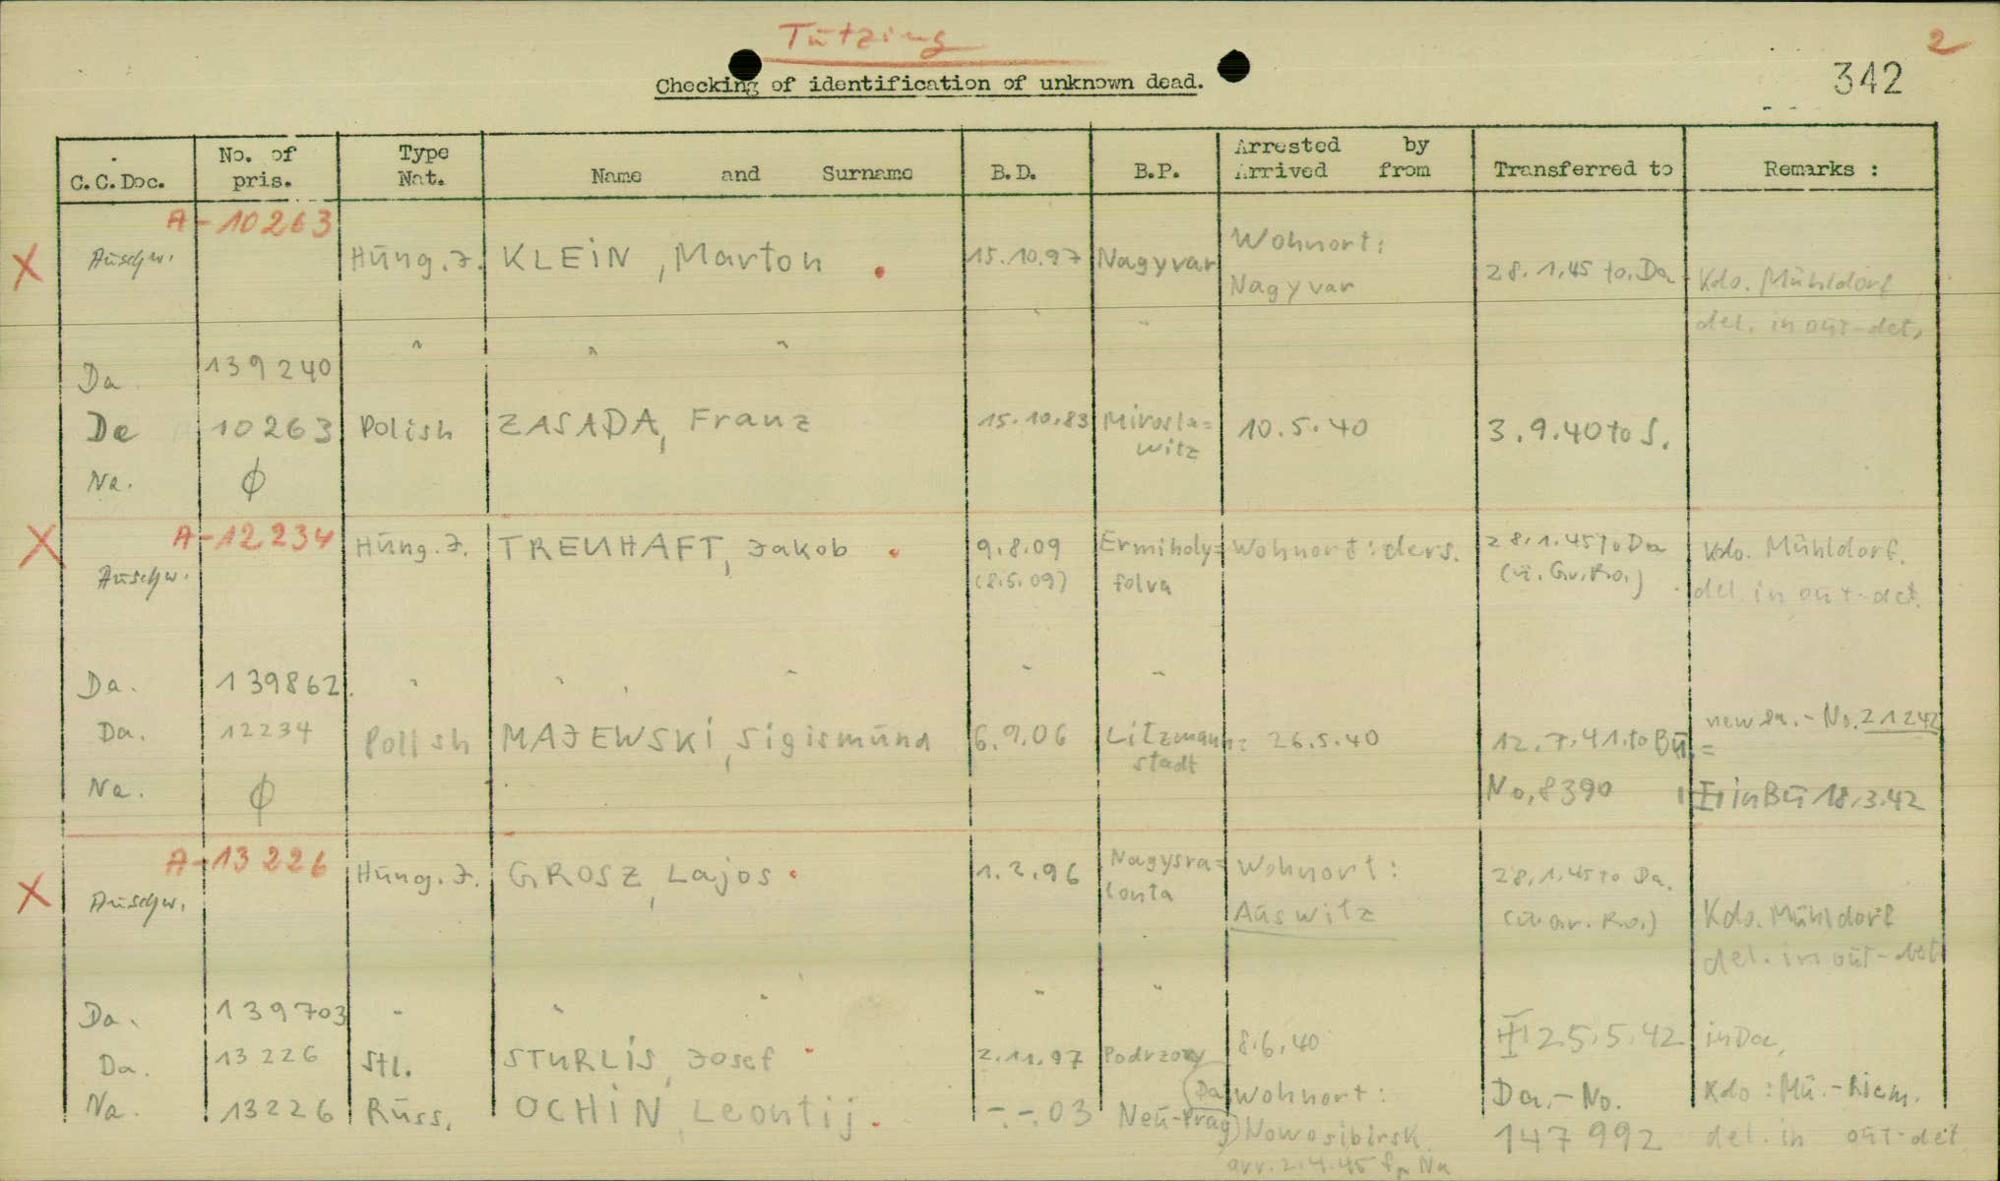 Tutzing
2
Checking of identification of unknown dead.
342
C.C.Doc. No. of pris. Type Nat. Name and Surname B.D. B.P. Arrested by Arrived from Transferred to Remarks :
A-10263
X Auschw. Hung.J. KLEIN, Marton 15.10.97 Nagyvar Wohnort: Nagyvar 28.1.45 to.Da Kdo. Mühldorf
del. in out-det.
Da 139240 " " "
De 10263 Polish ZASADA, Franz 15.10.83 Miroslawitz 10.5.40 3.9.40 to S.
Na. ϕ
A-12234
X Auschw. Hung.J. TREUHAFT, Jakob 9.8.09 (8.5.09) Ermiholy=folva Wohnort: ders. 28.1.45 to Da (ü. Gr.Ro.) Kdo. Mühldorf.
del. in out-det.
Da. 139862 " " " " "
Da. 12234 Polish MAJEWSKI, Sigismund 6.9.06 Litzmann=stadt 26.5.40 12.7.41.to Bu.= new Da.-No.21242
No,8390 in Bu 18.3.42
Na. ϕ
A-13226
X Auschw. Hung.J. GROSZ, Lajos 1.2.96 Wohnort: Auswitz 28.1.45 to Da. (ü Gr. Ro.) Kdo. Mühldorf
del. in out-det
Da. 139703 " " " " "
Da. 13226 Stl. STURLIS, Josef 2.11.97 8.6.40 25.5.42 in Da.
Na. 13226 Russ. OCHIN, Leontij. -.-.03 Neu-Prag Wohnort: Nowosibirsk Da.-No. 147992 Kdo: Mü.-Riem.
del. in out-det
arr. 2.4.45 fr Na